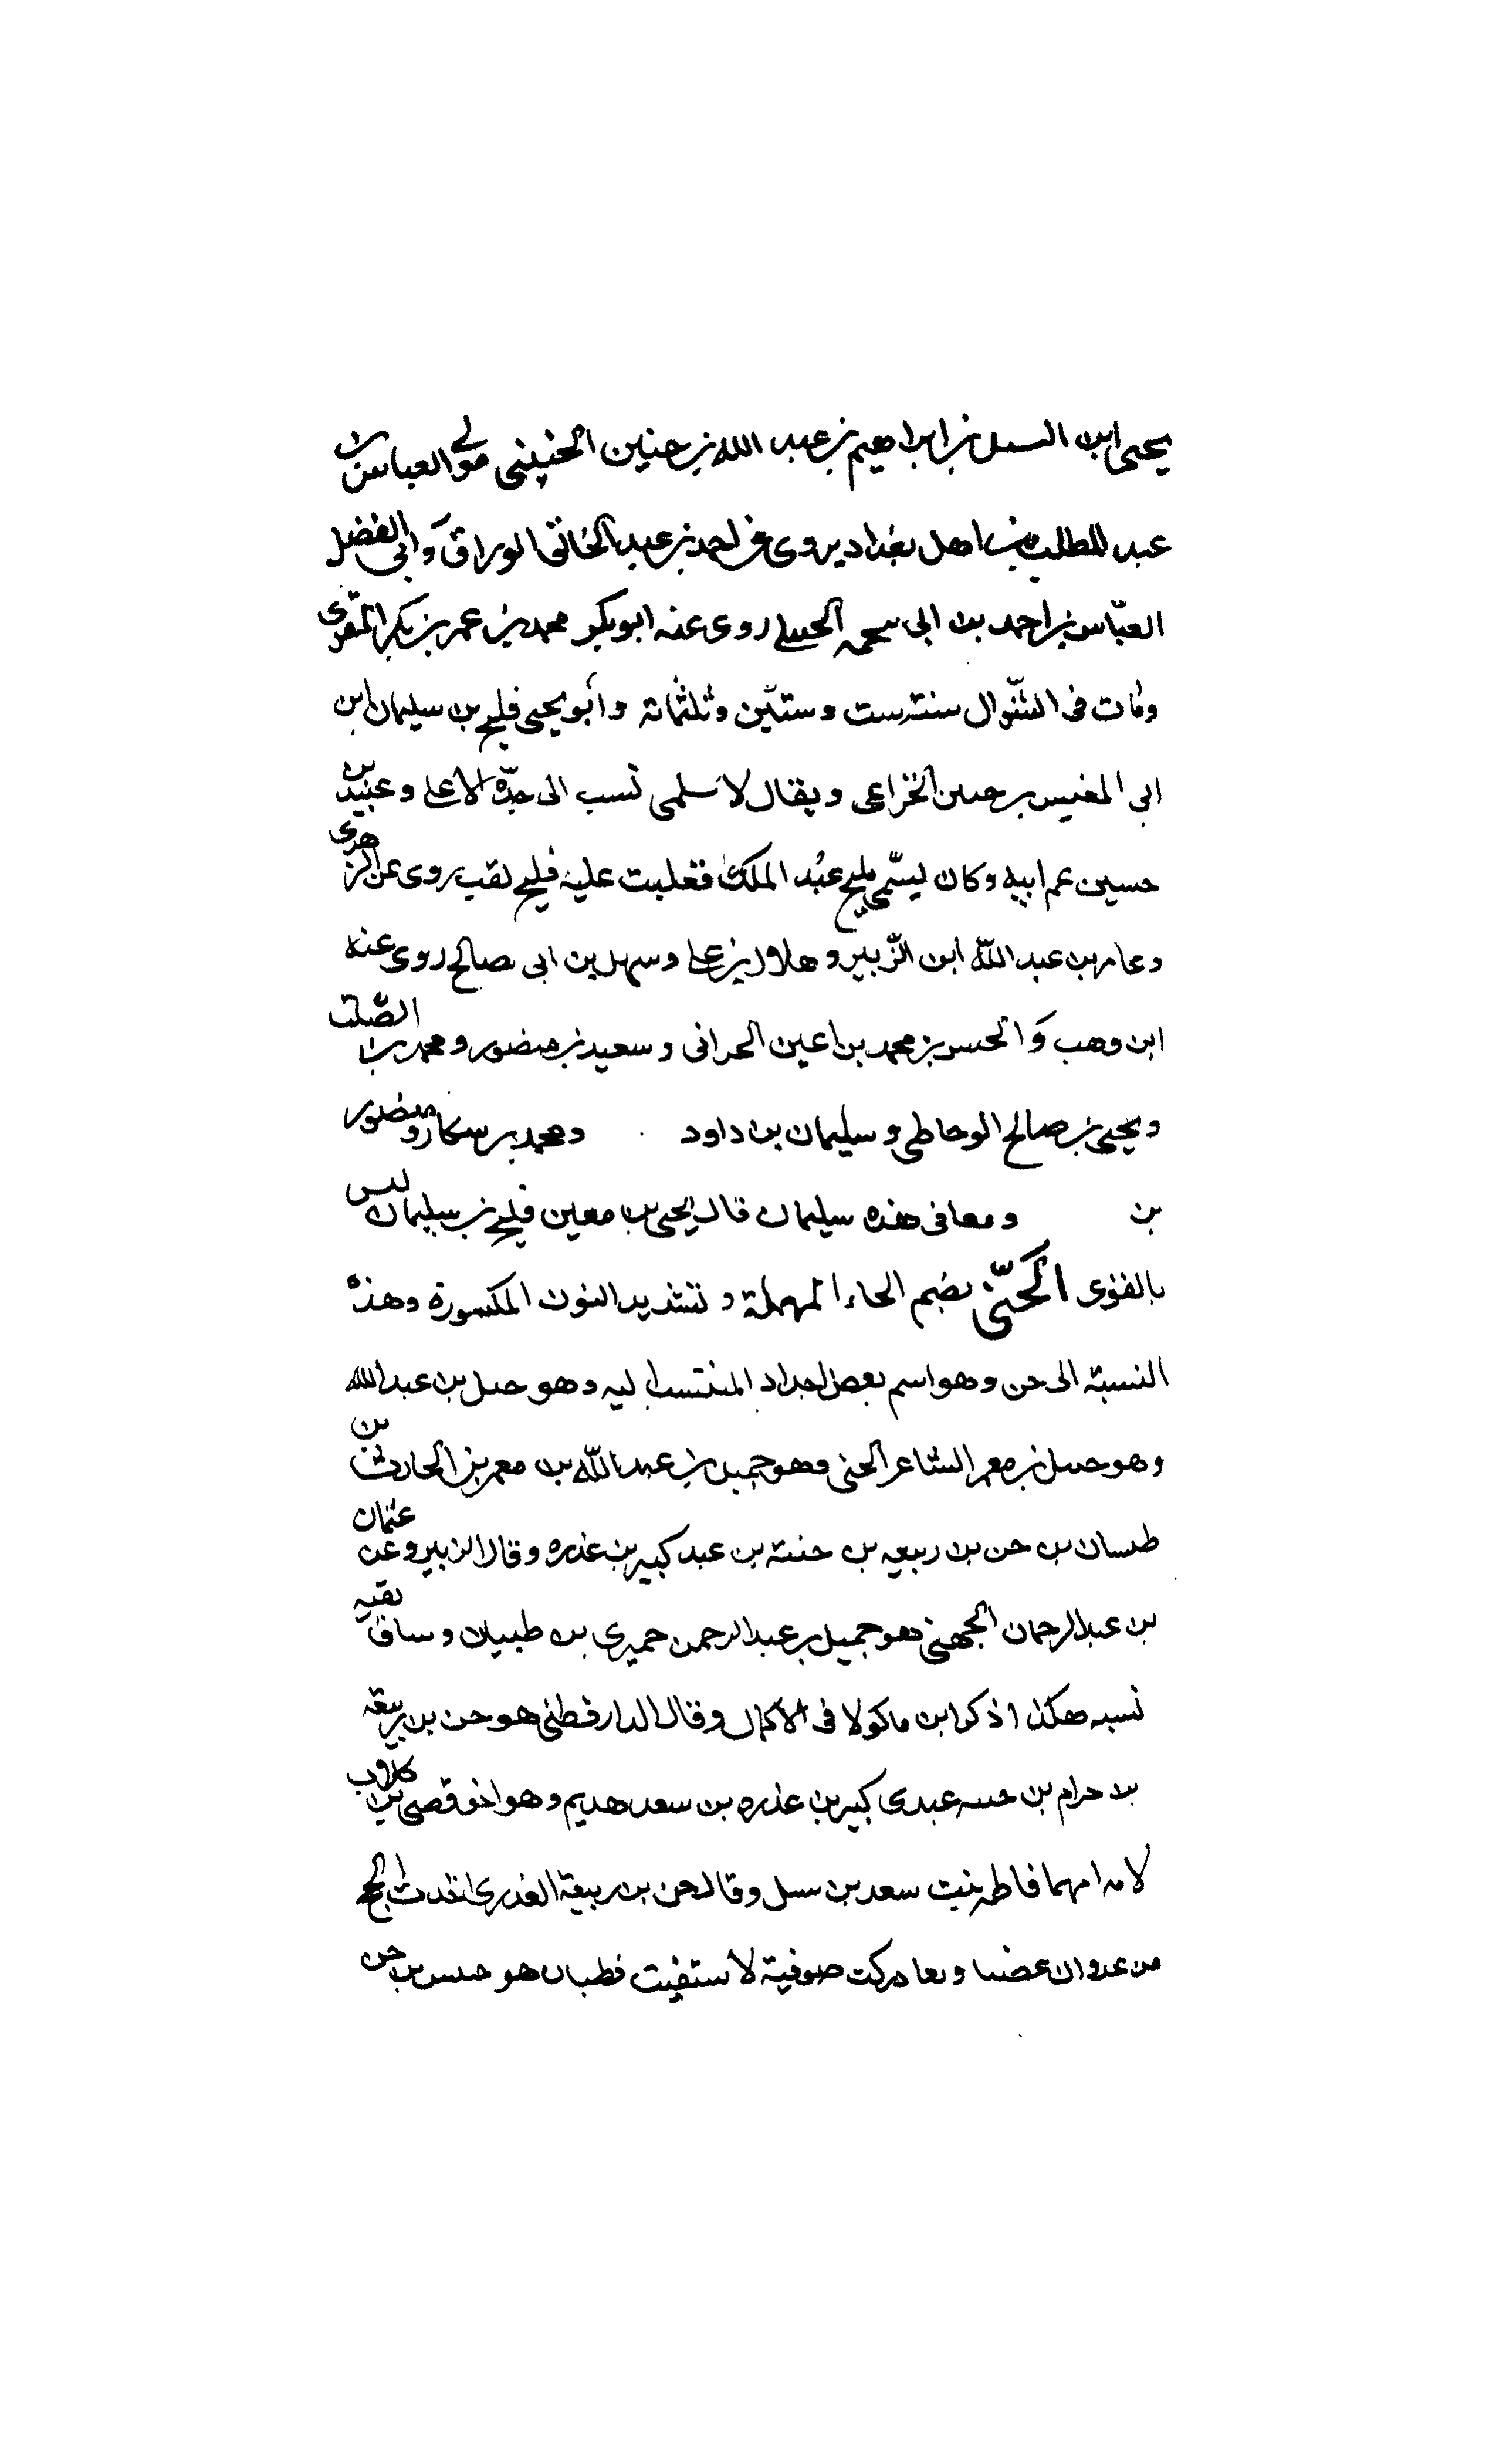 يحيى ابن السل بن ابراهيم بن عبد الله بن حنين الحنينى مولى العباس بن
عبد المطلب من اهل بغداد يروى عن احمد بن عبد الخالق الوراق وابى الفضل
العباس بن احمد بن ابى روى عنه ابو بكر محمد بن عمر بن بكر المقرى
ومات فى الشوال سنة ست وستين وثلثمائة وأبو يحيى فليح بن سليمان ابن
ابى المغيس بن حسن الخزاعى ويقال لاسلمى نسب الى جدّه الاعلى وعبيد بن
حسين عم ابيه وكان ليسمّى عبد الملك فغلبت عليه فليح لقب روى عن الزهرى
وعامر بن عبد الله ابن الزّبير وهلال بن على وسهل بن ابى صالح روى عنه
ابن وهب وَالحسن بن محمد بن اعين الحرانى وسعيد بن منصور ومحمد بن الصّلت
ويحيى بن صالح الوحاطى وسليمان بن داود ومحمد بن ومنصور
بن ومعافى هذه سليمان قال يحيى بن معين فليح بن سليمان ليس
بالقوى الحنّى بضم الحاء المهملة وتشديد النون المكسورة وهذه
النسبة الى حن وهو اسم بعض اجداد المنتسب اليه وهو حسل بن عبد الله
وهو حسل بن معمر الشاعر الحنى وهو جميل بن عبد الله بن معمر بن الحارث بن
طسان بن حن بن ربيعه بن حنته بن عبد كبير بن عذره وقال الزبير وعن عثمان
بن عبد الرحمان الجهنى هو جميل بن عبد الرحمن حميرى بن طبيان وساق بقيه
نسبه هكذا ذكر ابن ماكولا فى الاكمال وقال الدارقطنى هو حن بن ربيعه
بن حرام بن عبدى كبير بن عذره بن سعد هديم وهو اخو قصى بن كلاب
لامه امهما فاطمه بنت سعد بن سسل وقال حن بن ربيعة العذرى الحج
من عدوان صوفية لا ستفيت هو بن حن